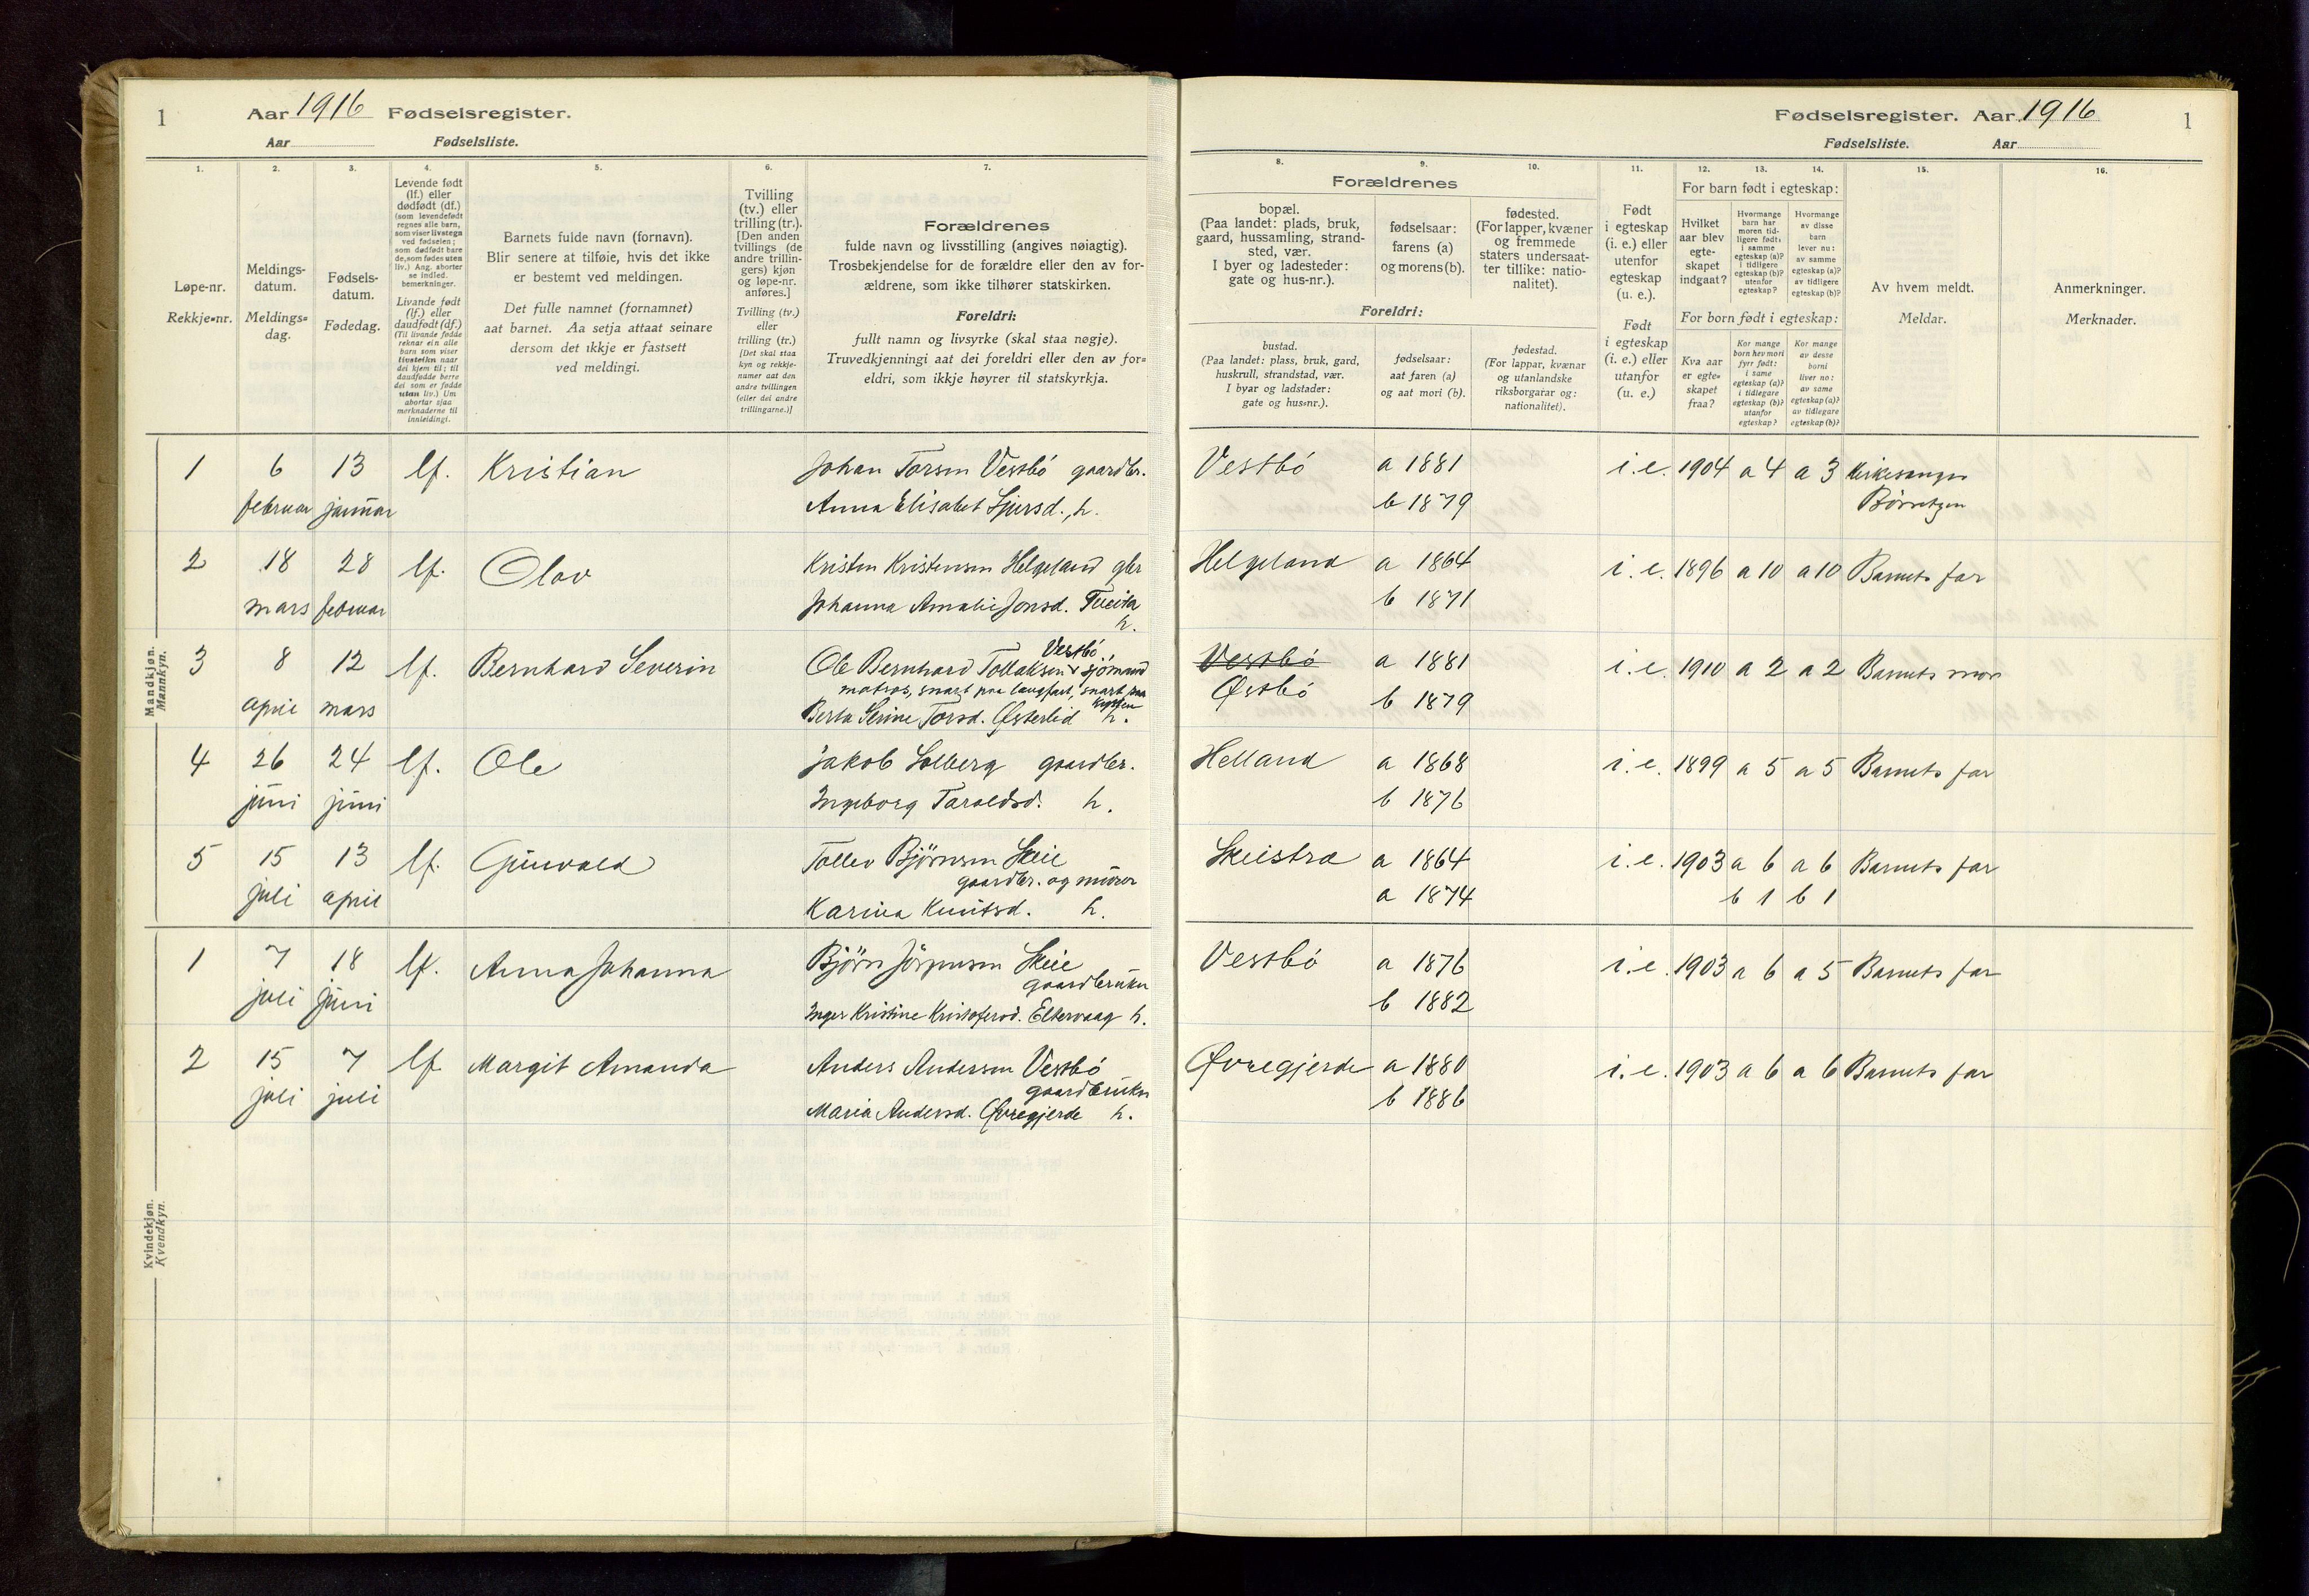 1
Aar 1916 Fødselsregister.
Aar Fødselsliste.
1.
2.
3.
4.
5.
6.
7.
Løpe-nr.
Rekkje-nr.
Meldings-
datum.
Meldings-
dag.
Fødsels-
datum.
Fødedag.
Levende født
(lf.) eller
dødfødt (df.)
(som levendefødt
regnes alle barn,
som viser livstegn
ved fødselen;
som dødfødt bare
de, som fødes uten
liv.) Ang. aborter
se indled.
bemerkninger.
Livande født
(lf.) eller
daudfødt (df.)
(Til livande fødde
reknar ein alle
barn som viser
livsteikn naar
dei kjem til; til
daudfødde berre
dei som er fødde
utan liv.) Um
abortar sjaa
merknaderne til
innleidingi.
Barnets fulde navn (fornavn).
Blir senere at tilføie, hvis det ikke
er bestemt ved meldingen.
Det fulle namnet (fornamnet)
aat barnet. Aa setja attaat seinare
dersom det ikkje er fastsett
ved meldingi.
Tvilling
(tv.) eller
trilling (tr.).
[Den anden
tvillings (de
andre trillin-
gers) kjøn
og løpe-nr.
anføres.]
Tvilling (tv.)
eller
trilling (tr.)
[Det skal staa
kyn og rekkje-
numer aat den
andre tvillingen
(eller dei andre
trillingarne.)]
Forældrenes
fulde navn og livsstilling (angives nøiagtig).
Trosbekjendelse for de forældre eller den av for-
ældrene, som ikke tilhører statskirken.
Foreldri:
fullt namn og livsyrke (skal staa nøgje).
Truvedkjenningi aat dei foreldri eller den av for-
eldri, som ikkje høyrer til statskyrkja.
Mandkjøn.
Mannkyn.
1 6 13 lf. Kristian Johan Torsen Vestbö gaardbr.
februar januar Anna Elisabet Sjursd., h.
2 18 28 lf. Olav Kristen Kristensen Helgeland gbr
mars februar Johanna Amalie Jonsd.
h.
Vestbö
3 8 12 lf. Bernhard Severin Ole Bernhard Tollaksen sjömand
matros, snart paa langfart, snart paa
kysten
april mars Berta Serine Torsd. Østerlid h.
4 26 24 lf. Ole Jakob Solberg gaardbr.
juni juni Ingeborg Taraldsd. h.
5 15 13 lf. Gunvald Tollev Björnsen Skeie
gaardbr. og murer
juli april Karina Knutsd. h.
Kvindekjøn.
Kvendkyn.
1 7 18 lf. Anna Johanna Björn Jörgensen Skeie
gaardbruker
juli juni Inger Kristine Kristofersd. Eltervaag h.
2 15 7 lf. Margit Amanda Anders Andersen Vestbö
gaardbruker
juli juli Maria Andersd. Øvregjerde h.
Fødselsregister. Aar 1916
1
Fødselsliste. Aar
8.
9.
10.
11.
12.
13.
14.
15.
16.
Forældrenes
bopæl.
(Paa landet: plads, bruk,
gaard, hussamling, strand-
sted, vær.
I byer og ladesteder:
gate og hus-nr.).
fødselsaar:
farens (a)
og morens (b).
fødested.
(For lapper, kvæner
og fremmede
staters undersaat-
ter tillike: natio-
nalitet).
Foreldri:
bustad.
(Paa landet: plass, bruk, gard,
huskrull, strandstad, vær.
I byar og ladstader:
gate og hus-nr.).
fødselsaar:
aat faren (a)
og aat mori (b).
fødestad.
(For lappar, kvænar
og utanlandske
riksborgarar og:
nationalitet).
Født
i egteskap
(i. e.) eller
utenfor
egteskap
(u. e.).
Født
i egteskap
(i. e.) eller
utanfor
(u. e.)
For barn født i egteskap:
Hvilket
aar blev
egte-
skapet
indgaat?
Hvormange
barn har
moren tid-
ligere født:
i samme
egteskap (a)?
i tidligere
egteskap (b)?
utenfor
egteskap?
Hvormange
av disse
barn
lever nu:
av samme
egteskap (a)?
av tidligere
egteskap (b)?
For born født i egteskap:
Kva aar
er egte-
skapet
fraa?
Kor mange
born hev mori
fyrr født:
i same
egteskap (a)?
i tidlegare
egteskap (b)?
utanfor
egteskap?
Kor mange
av desse
borni
liver no:
av same
egteskap (a)?
av tidlegare
egteskap (b)?
Av hvem meldt.
Meldar.
Anmerkninger.
Merknader.
Vestbö a 1881 i. e. 1904 a 4 a 3 Kirkesanger
b 1879
Helgeland a 1864 i. e. 1896 a 10 a 10 Barnets far
b 1871
Vestbö a 1881 i. e. 1910 a 2 a 2 Barnets mor
Østbö b 1879
Helland a 1868 i. e. 1899 a 5 a 5 Barnets far
b 1876
Skeistra a 1864 i. e. 1903 a 6 a 6 Barnets far
a 1874 b 1 b 1
Vestbö a 1876 i. e. 1903 a 6 a 5 Barnets far
b 1882
Øvregjerde a 1880 i. e. 1903 a 6 a 6 Barnets far
b 1886